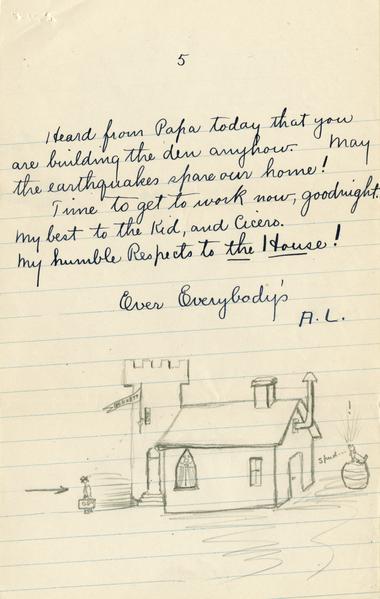 5
Heard from Papa today that you
are building the den anyhow. May
the earthquakes spare our home!
Time to get to work now, goodnight.
My best to the Kid, and Cicero.
My humble Respects to the House!
Ever Everybody's
A.L.
Spud...